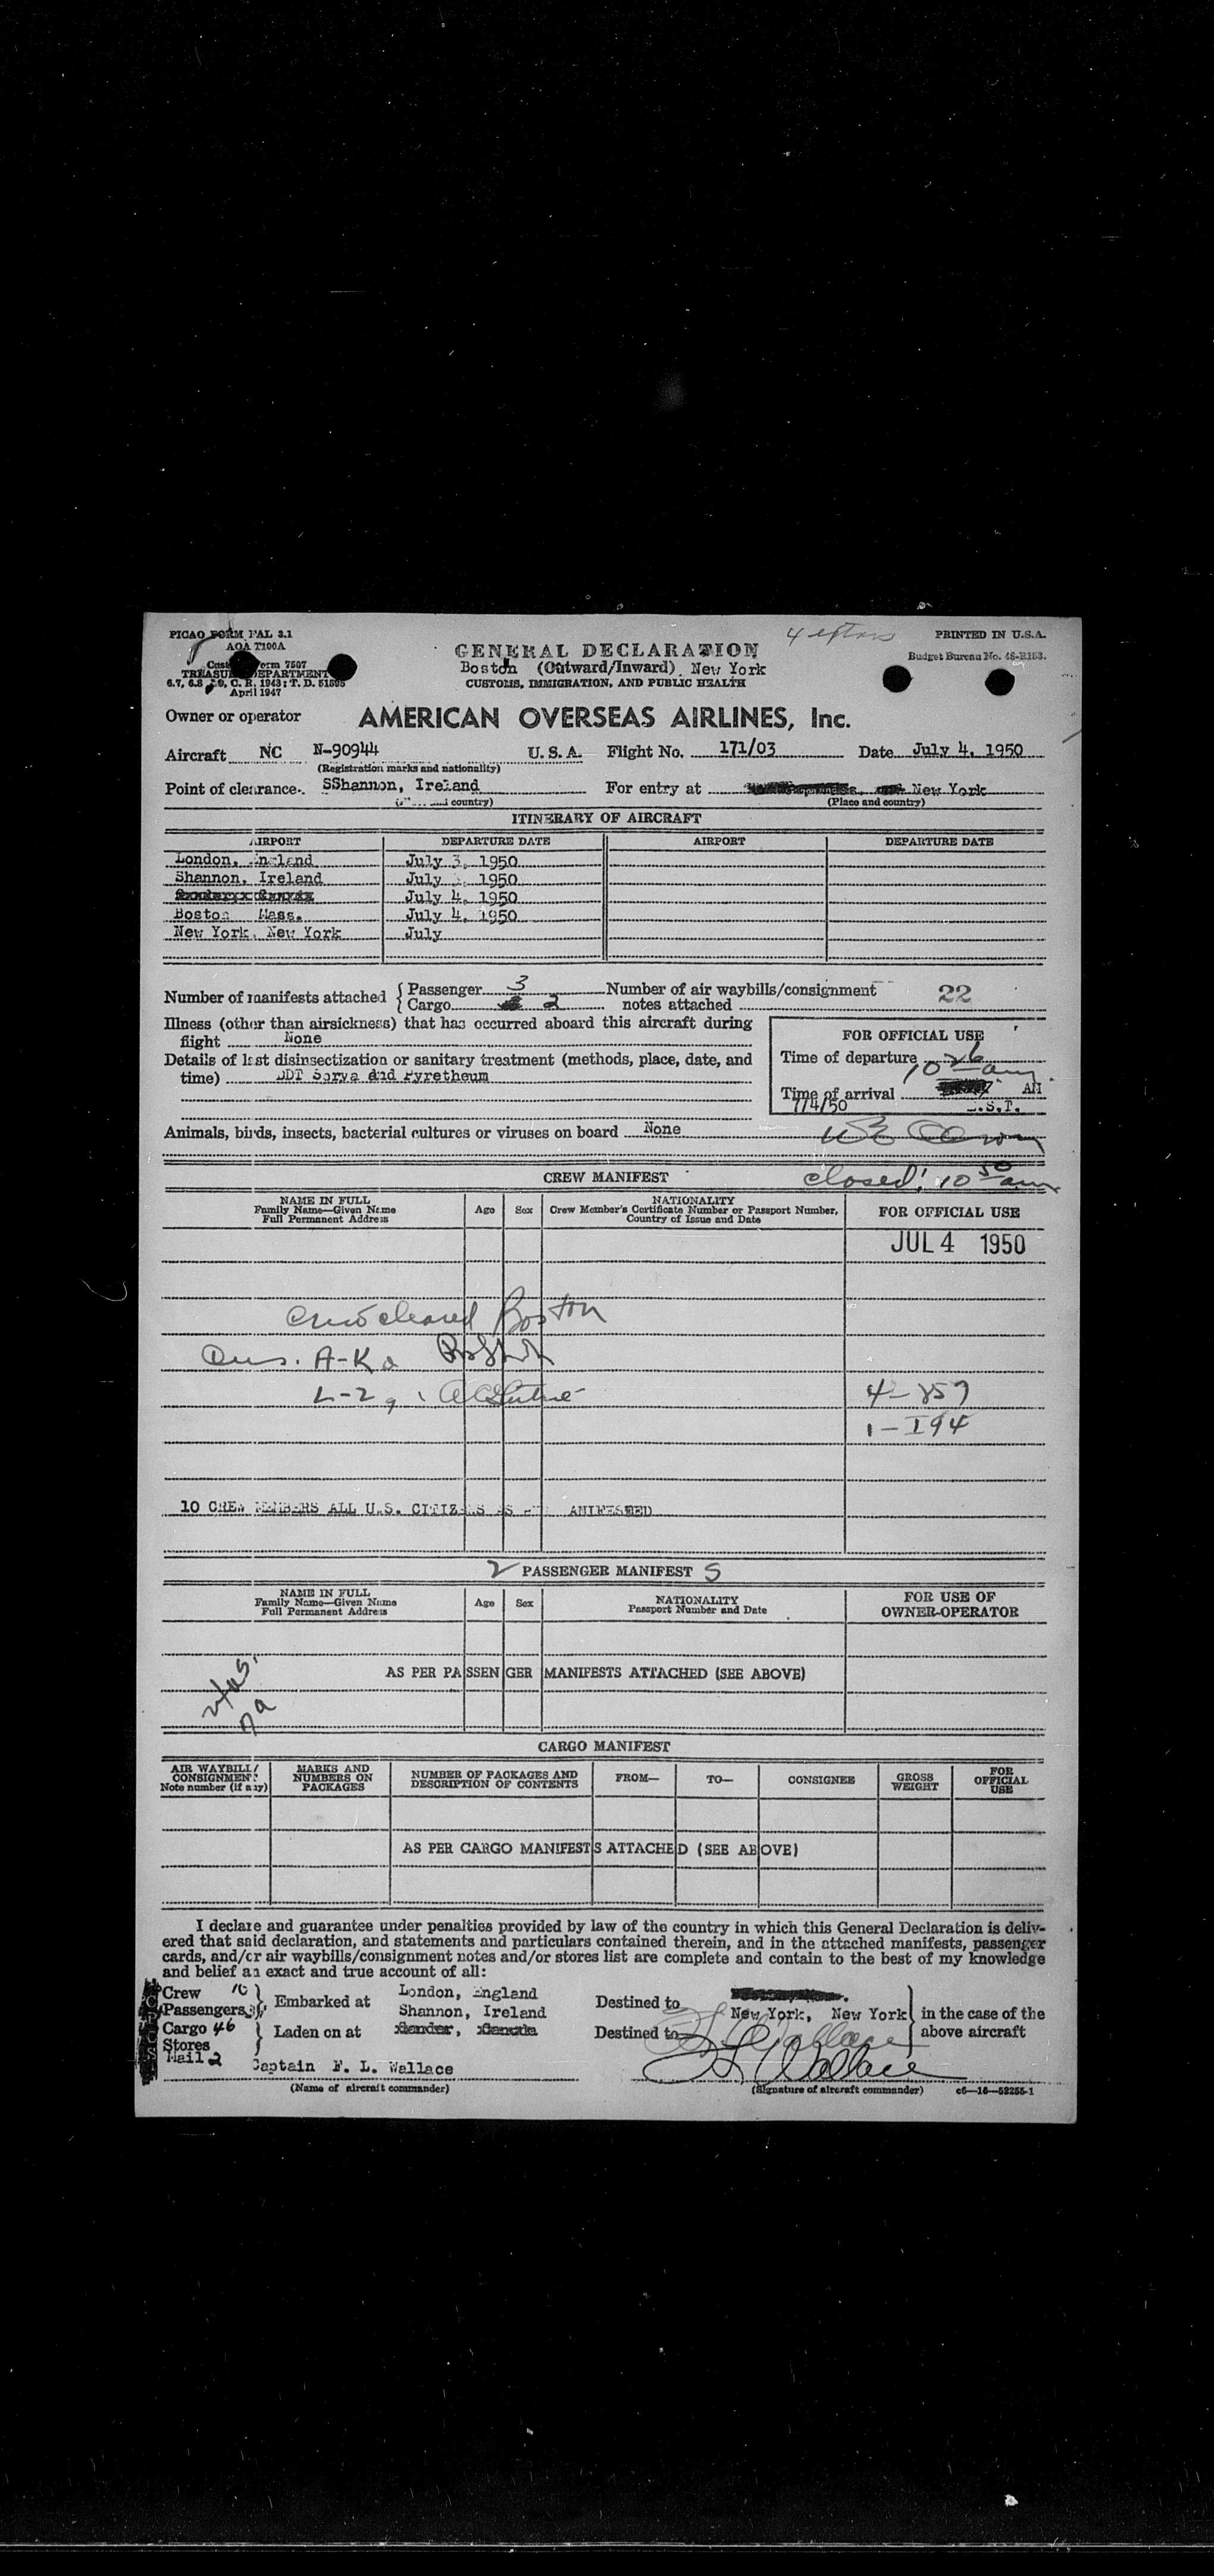 PICAO FORM PAL 3.1
AOA T100A
Form 7507
TREASURY DEPARTMENT
6.7, 6.8, 6.9, C. R. 1943: T. D. 51595
April 1947
PRINTED IN U.S.A.
Budget Bureau No.
GENERAL DECLARATION
Boston (Outward/Inward) New York
CUSTOMS, IMMIGRATION, AND PUBLIC HEALTH
Owner or operator AMERICAN OVERSEAS AIRLINES, Inc.
Aircraft NC N-90944 U. S. A. Flight No. 171/03 Date July 4, 1950
(Registration marks and nationality)
Point of clearance SShannon, Ireland For entry at New York
country) (Place and country)
ITINERARY OF AIRCRAFT
AIRPORT DEPARTURE DATE AIRPORT DEPARTURE DATE
London, England July 3, 1950
Shannon, Ireland July 1950
July 4, 1950
Boston Mass. July 4, 1950
New York, New York July
Number of manifests attached { Passenger 3 Number of air waybills/consignment 22
Cargo 2 notes attached
Illness (other than airsickness) that has occurred aboard this aircraft during
flight None
Details of last disinsectization or sanitary treatment (methods, place, date, and
time) DDT Sprya and Pyretheum
FOR OFFICIAL USE
Time of departure 10 26 am
Time of arrival AM
7/4/50 .S.T.
Animals, birds, insects, bacterial cultures or viruses on board None
CREW MANIFEST closed! 10 50 am
NAME IN FULL
Family Name—Given Name
Full Permanent Address
Age Sex
NATIONALITY
Crew Member's Certificate Number or Passport Number,
Country of Issue and Date
FOR OFFICIAL USE
JUL 4 1950
Crew cleared Boston
A-K
L-2
4-257
1-I94
10 CREW MEMBERS ALL U.S. CITIZENS AS
2 PASSENGER MANIFEST S
NAME IN FULL
Family Name—Given Name
Full Permanent Address
Age Sex
NATIONALITY
Passport Number and Date
FOR USE OF
OWNER-OPERATOR
AS PER PASSENGER MANIFESTS ATTACHED (SEE ABOVE)
CARGO MANIFEST
AIR WAYBILL/
CONSIGNMENT
Note number (if any)
MARKS AND
NUMBERS ON
PACKAGES
NUMBER OF PACKAGES AND
DESCRIPTION OF CONTENTS
FROM— TO— CONSIGNEE
GROSS
WEIGHT
FOR
OFFICIAL
USE
AS PER CARGO MANIFESTS ATTACHED (SEE ABOVE)
I declare and guarantee under penalties provided by law of the country in which this General Declaration is deliv-
ered that said declaration, and statements and particulars contained therein, and in the attached manifests, passenger
cards, and/or air waybills/consignment notes and/or stores list are complete and contain to the best of my knowledge
and belief an exact and true account of all:
Crew 10
Passengers
Cargo 46
Stores
Mail 2
Embarked at London, England
Shannon, Ireland
Laden on at
Destined to
New York, New York
Destined to
in the case of the
above aircraft
Captain F. L. Wallace F L Wallace
(Name of aircraft commander) (Signature of aircraft commander) c6—16—52255-1